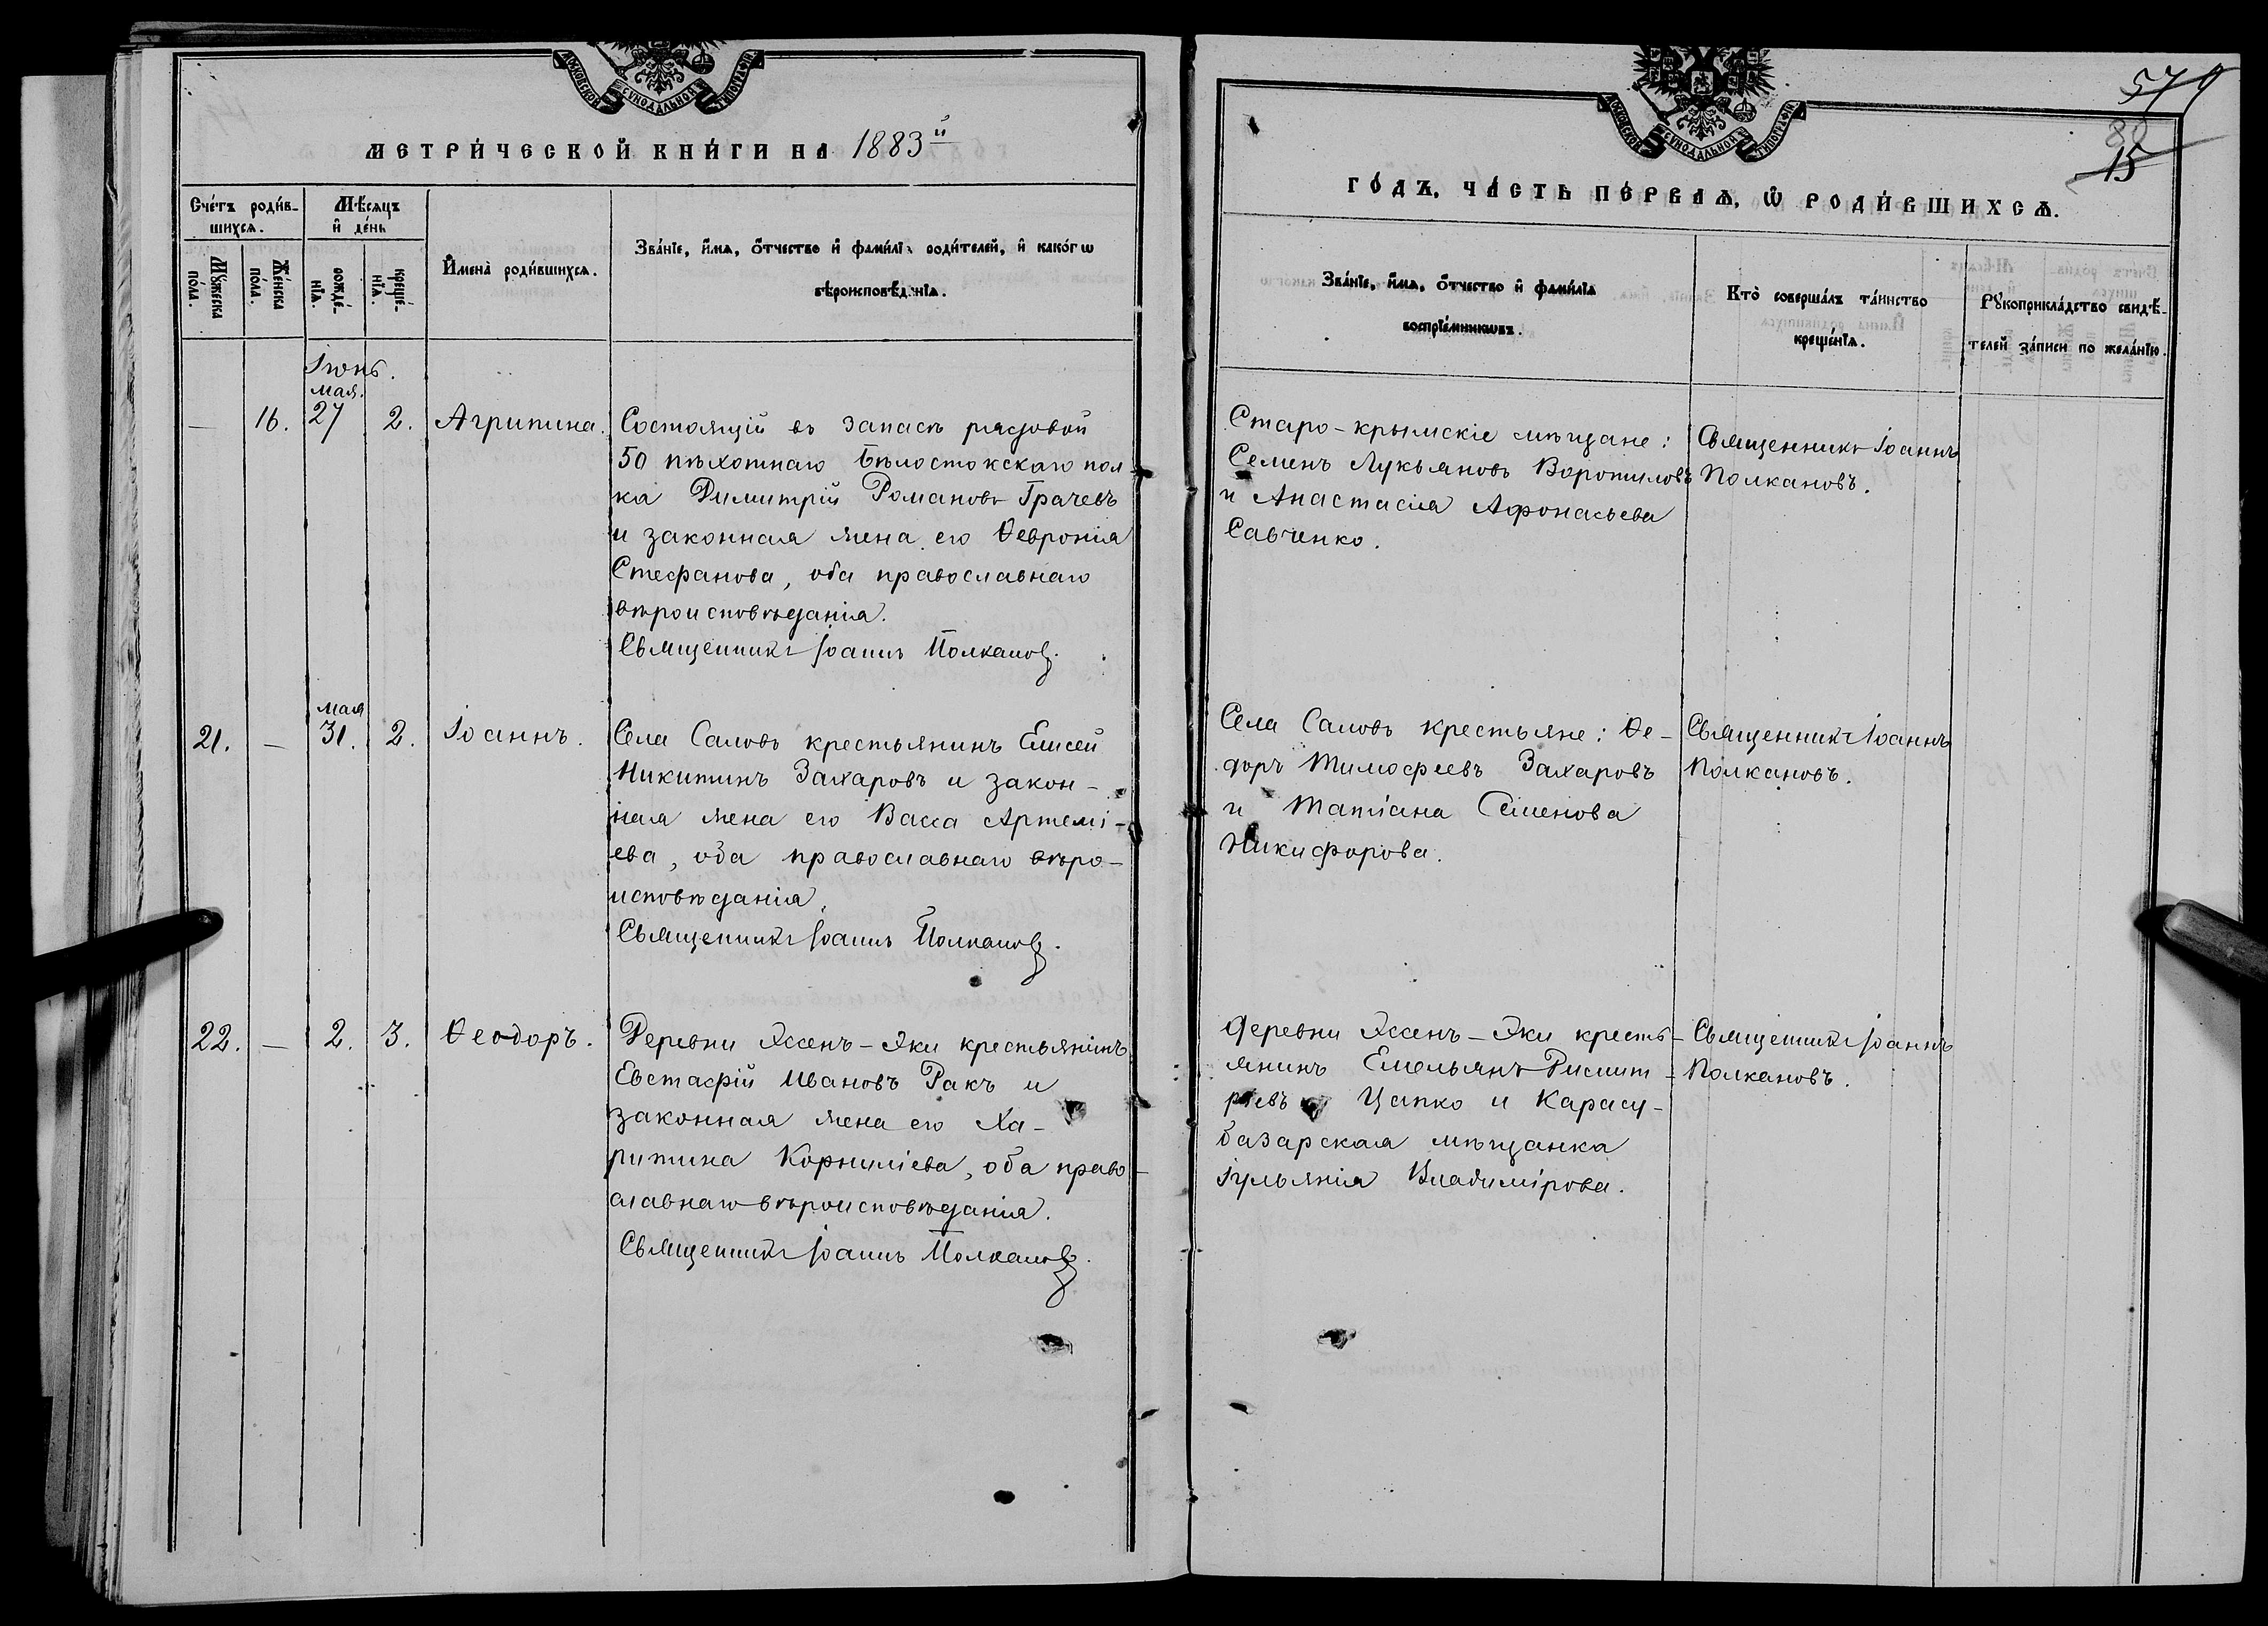 МОСКОВСКОЙ СѴНОДАЛЬНОЙ ТИПОГРАФІИ
МЕТРИ́ЧЕСКОЙ КНИ́ГИ НА 1883й
Сче́тъ роди́в-
шихсѧ.
Мѣ́сѧцъ
и҆ де́нь
Мꙋ́жеска
по́ла.
Же́нска
по́ла.
рожде́-
нїѧ.
креще́-
нїѧ.
И҆мена̀ роди́вшихсѧ.
Зва́нїе, и҆́мѧ, ѻ҆́тчество и҆ фамі́лїѧ роди́телей, и҆ како́гѡ
вѣроисповѣ́данїѧ.
Іюнь.
мая.
— 16. 27 2. Агрипина.
Состоящій въ запасѣ рядовой
50 пѣхотнаго Бѣлостокскаго пол-
ка Димитрій Романовъ Грачевъ
и законная жена его Ѳевронія
Стефанова, оба православнаго
вѣроисповѣданія.
Священникъ Іоаннъ Полкановъ.
мая
21. — 31. 2. Іоаннъ.
Села Саловъ крестьянинъ Елисей
Никитинъ Захаровъ и закон-
ная жена его Васса Артемі-
ева, оба православнаго вѣро-
исповѣданія.
Священникъ Іоаннъ Полкановъ.
22. — 2. 3. Ѳеодоръ.
Деревни Яссенъ-Яки крестьянинъ
Евстафій Ивановъ Ракъ и
законная жена его Ха-
ритина Корниліева, оба право-
славнаго вѣроисповѣданія.
Священникъ Іоаннъ Полкановъ.
МОСКОВСКОЙ СѴНОДАЛЬНОЙ ТИПОГРАФІИ
15
ГО́ДЪ, ЧА́СТЬ ПЕ́РВАѦ, Ѡ҆ РОДИ́ВШИХСѦ.
Зва́нїе, и҆́мѧ, ѻ҆́тчество и҆ фамі́лїѧ
воспрїе́мникѡвъ.
Кто̀ соверша́лъ та́инство
креще́нїѧ.
Рꙋкоприкла́дство свидѣ́-
телей за́писи по жела́нїю.
Старо-крымскіе мѣщане:
Семенъ Лукьяновъ Воропиловъ
и Анастасія Афонасьева
Савченко.
Священникъ Іоаннъ
Полкановъ.
Села Саловъ крестьяне: Ѳе-
доръ Тимофеевъ Захаровъ
и Татіана Семенова
Никифорова.
Священникъ Іоаннъ
Полкановъ.
Деревни Яссенъ-Яки кресть-
янинъ Емельянъ Димит-
ріевъ Цапко и Карасу-
базарская мѣщанка
Іульянія Владимірова.
Священникъ Іоаннъ
Полкановъ.